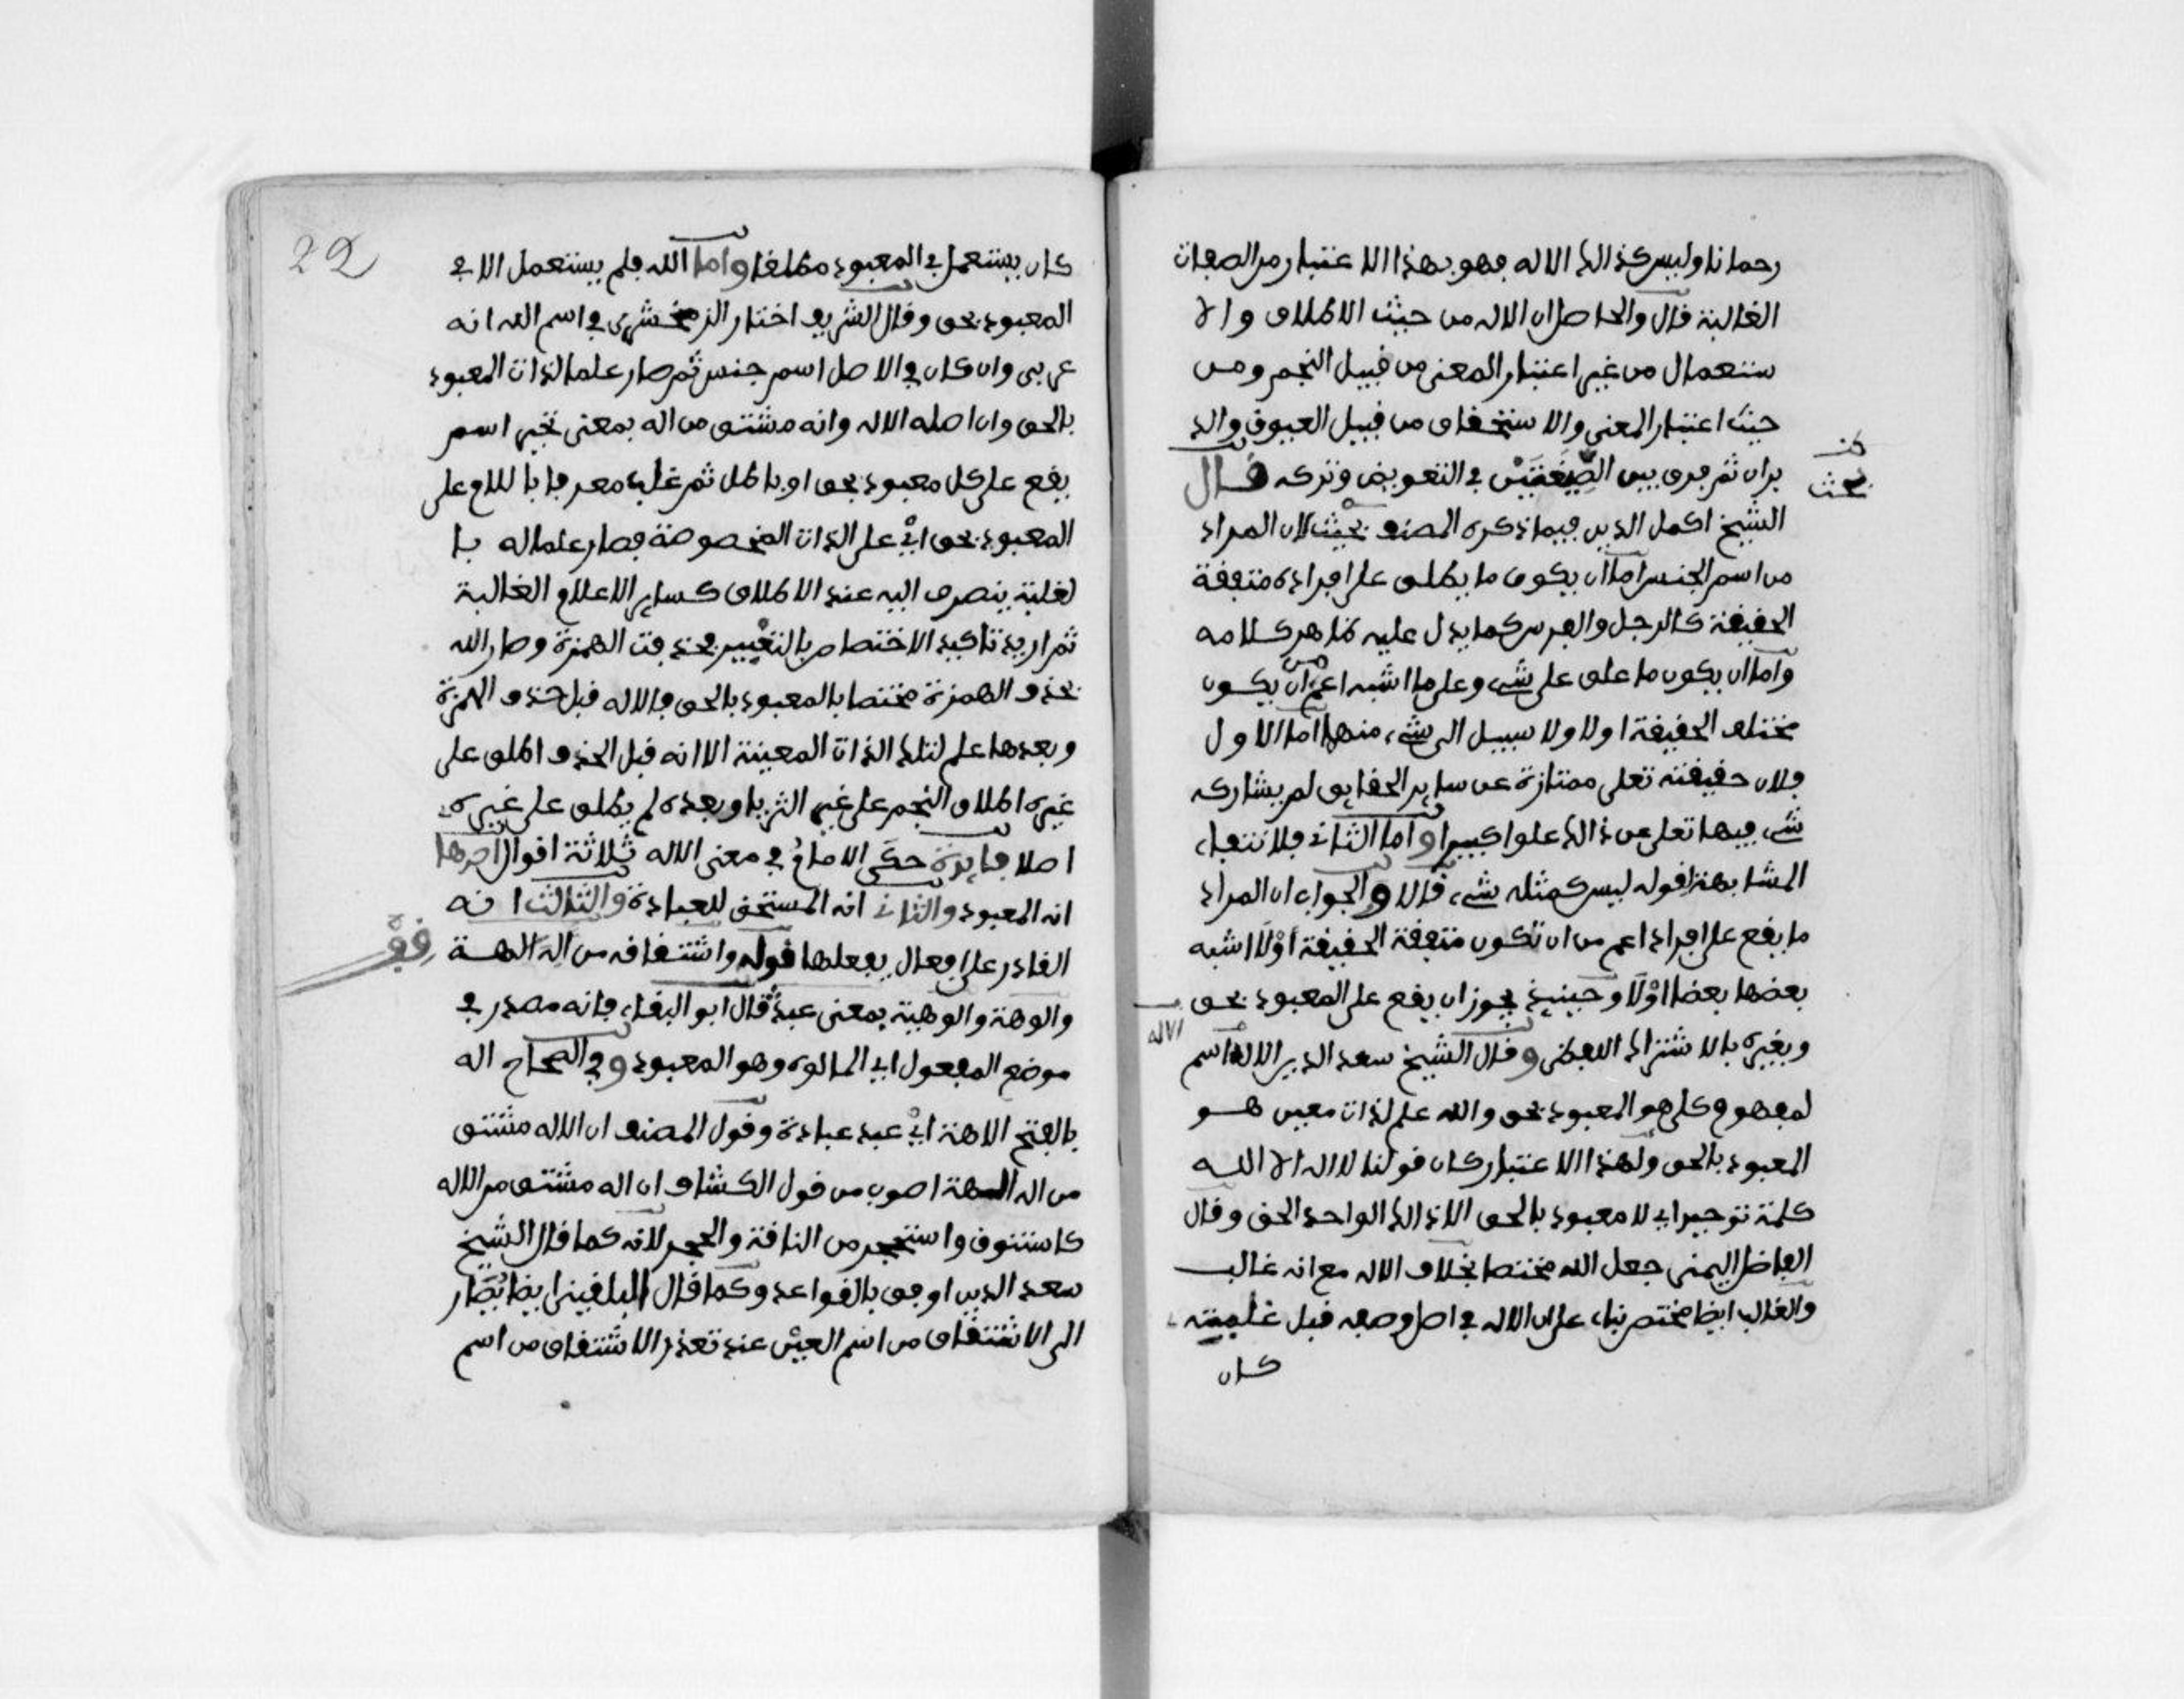 رحمانا وليس كذالك الاله فهو بهذا الاعتبار من الصفات
الغالبة قال والحاصل ان الاله من حيث الاطلاق والا
ستعمال من غير اعتبار المعنى من قبيل النجم ومن
حيث اعتبار المعنى والاستحقاق من قبيل العيوق والد
بران ثم فرق بين الصيغتين في التعويض وتركه قال
بحث
الشيخ اكمل الدين فيما ذكره المصنف بحيث لان المراد
من اسم الجنس اما ان يكون ما يطلق على افراده متفقة
الحقيقة كالرجل والفرس كما يدل عليه ظاهر كلامه
واما ان يكون ما علق على شيء وعلى ما اشبه اعم من ان يكون
مختلف الحقيقة اولا ولا سبيل الى شيء منهما اما الاول
فلان حقيقته تعلى ممتازة عن ساير الحقايق لم يشاركه
شيء فيها تعلى عن ذالك علوا كبيرا واما الثاني فلانتفاء
المشابهة لقوله ليس كمثله شيء قال والجواب ان المراد
ما يقع على افراد اعم من ان تكون متفقة الحقيقة أوْلَا اشبه
بعضها بعضا اوْلَا وحينيذ يجوز ان يقع على المعبود بحق
وبغيره بالاشتراك اللفظي وقال الشيخ سعد الدين الاله اسم
الاله
لمفهوم كلي هو المعبود بحق والله علم لذات معين هو
المعبود بالحق ولهذا الاعتبار كان قولنا لااله الا الله
كلمة توحيد اي لا معبود بالحق الا ذالك الواحد الحق وقال
الفاضل اليمني جعل الله مختصا بخلاف الاله مع انه غالب
والغالب ايضا مختص بناء على ان الاله في اصل وضعه قبل غلبته
كان
22
كان يستعمل في المعبود مطلقا واما الله فلم يستعمل الا في
المعبود بحق وقال الشريف اختار الزمخشري في اسم الله انه
عربي وان كان في الاصل اسم جنس ثم صار علما لذات المعبود
بالحق وان اصله الاله وانه مشتق من اله بمعنى تحير اسم
يقع على كل معبود بحق او باطل ثم غلب معرفا باللام على
المعبود بحق ايْ على الذات المخصوصة فصار علما له با
لغلبة ينصرف اليه عند الاطلاق كساير الاعلام الغالبة
ثم اريد تاكيد الاختصاص بالتغيير فحذفت الهمزة وصار الله
بحذف الهمزة مختصا بالمعبود بالحق فالاله قبل حذف الهمزة
وبعدها علم لتلك الذات المعينة الا انه قبل الحذف اطلق على
غيره اطلاق النجم على غير الثريا وبعده لم يطلق على غيره
اصلا فايدة حكى الامام في معنى الاله ثلاثة اقوال احدها
انه المعبود والثاني انه المستحق للعبادة والثالث انه
القادر على افعال يفعلها قوله واشتقاقه من اله الهة
والوهة والوهية بمعنى عبد قال ابو البقاء فانه مصدر في
موضع المفعول اي المالوه وهو المعبود وفي الصحاح اله
بالفتح الاهة ايْ عبد عبادة وقول المصنف ان الاله مشتق
من اله الهة اصوب من قول الكشاف ان اله مشتق من الاله
كاستنوق واستحجر من الناقة والحجر لانه كما قال الشيخ
سعد الدين اوفق بالقواعد وكما قال البلقيني ايضا يُصَار
الى الاشتقاق من اسم العين عند تعذر الاشتقاق من اسم